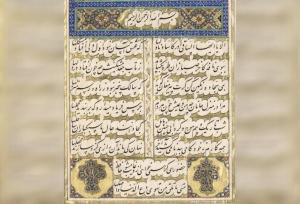 بسم الله الرحمن الرحیم
الا یا ایها الساقی ادر کاسا و ناولها که عشق آسان نمود اول ولی افتاد مشکلها
ببوی نافه کاخر صبا زان طره بگشاید ز تاب جعد مشکینش چه خون افتاد در دلها
بمی سجاده رنگین کن گرت پیر مغان گوید که سالک بیخبر نبود ز راه و رسم منزلها
مرا در منزل جانان چه امن عیش چون هر دم جرس فریاد میدارد که بربندید محملها
شب تاریک و بیم موج و گردابی چنین هایل کجا دانند حال ما سبکباران ساحلها
همه کارم ز خود کامی ببدنامی کشید آخر نهان کی ماند آن رازی کزو سازند محفلها
حضوری گر همی خواهی ازو غایب مشو حافظ
متی ما تلق من تهوی دع الدنیا و اهملها